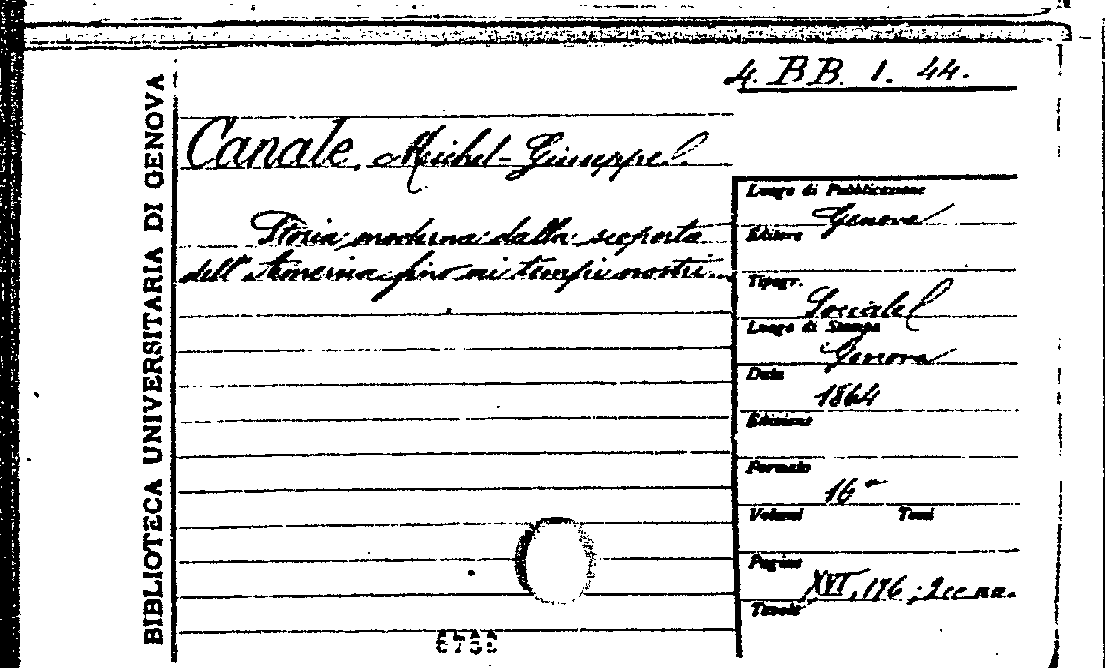 4. BB. 1. 44.
BIBLIOTECA UNIVERSITARIA DI GENOVA
Canale, Michel-Giuseppe.
Storia moderna dalla scoperta
dell'America fino ai tempi nostri.
Luogo di Pubblicazione
Genova
Editore
Tipogr.
Sociale
Luogo di Stampa
Genova
Data
1864
Edizione
Formato
16°
Volumi Tomi
Pagine
XVI, 176; 2 cc nn.
Tavole